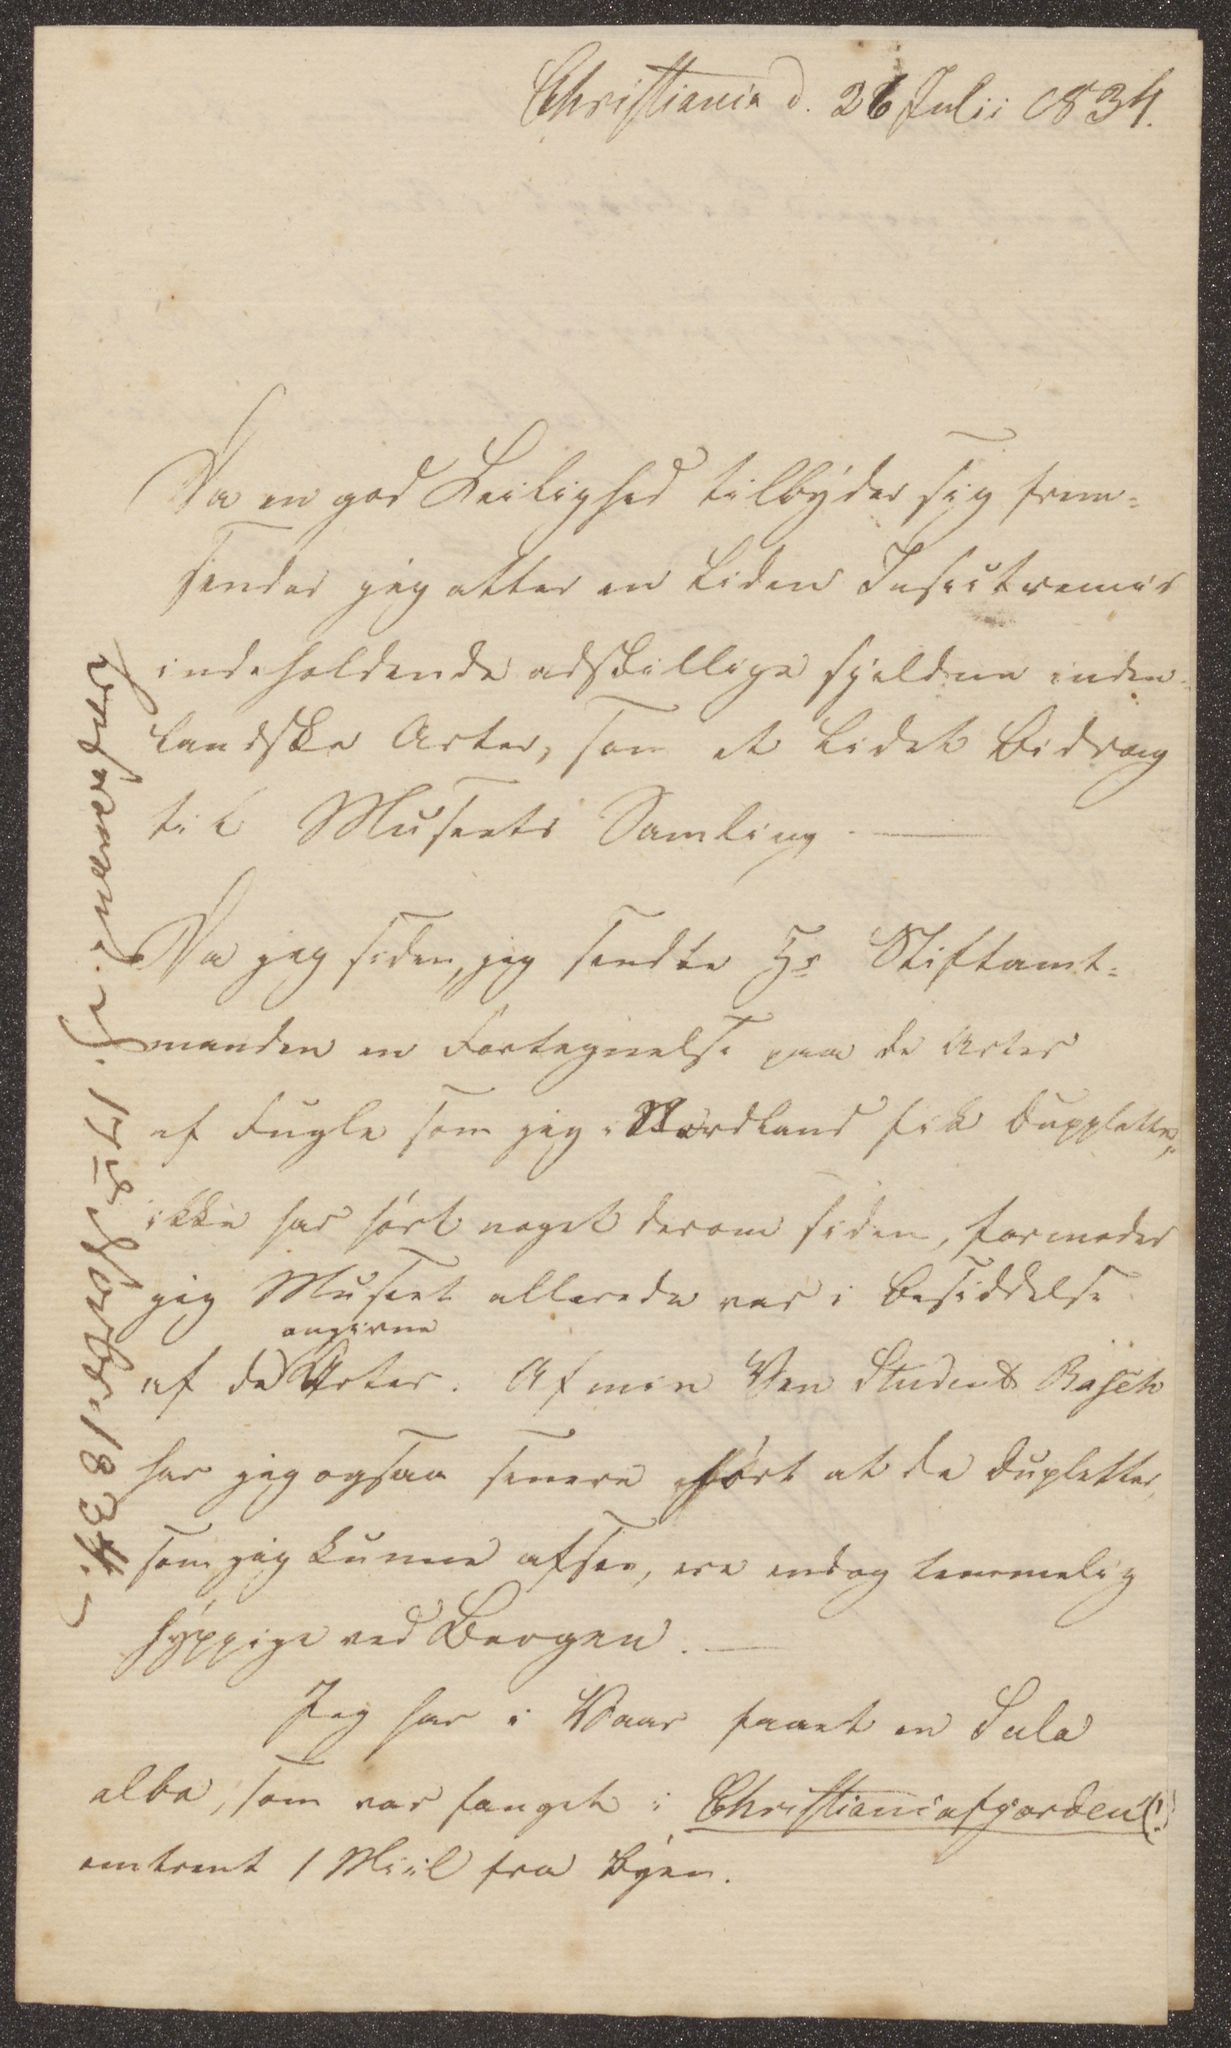 Christiania d. 26 Julii 1834.
Da en god Leilighed tilbyder sig frem-
sender jeg atter en liden Insectremis
indeholdende adskillige sjeldne inden-
landske Arter, som et lidet Bidrag
til Museets Samling. —
Da jeg siden, jeg sendte Hr Stiftamt-
manden en Fortegnelse paa de Arter
af Fugle som jeg i Nordland fik Duppletter,
ikke har hört noget derom siden, formoder
jeg Museet allerede var i Besiddelse
angivne
af de Arter. Af min Ven Student Rasch
har jeg ogsaa senere hört at de Dupletter,
som jeg kunne afsee, ere endog temmelig
hyppige ved Bergen. —
Jeg har i Vaar faaet en Sula
alba, som var fanget i Christianiafjorden (!)
omtrent 1 Miil fra Byen.
17de Novbr 1834.